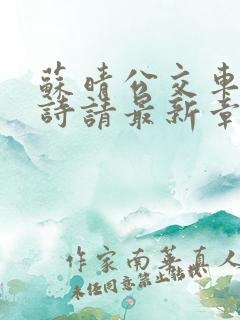 蘇晴公交車
詩請最新章
作家南華真人
未经同意禁止转载